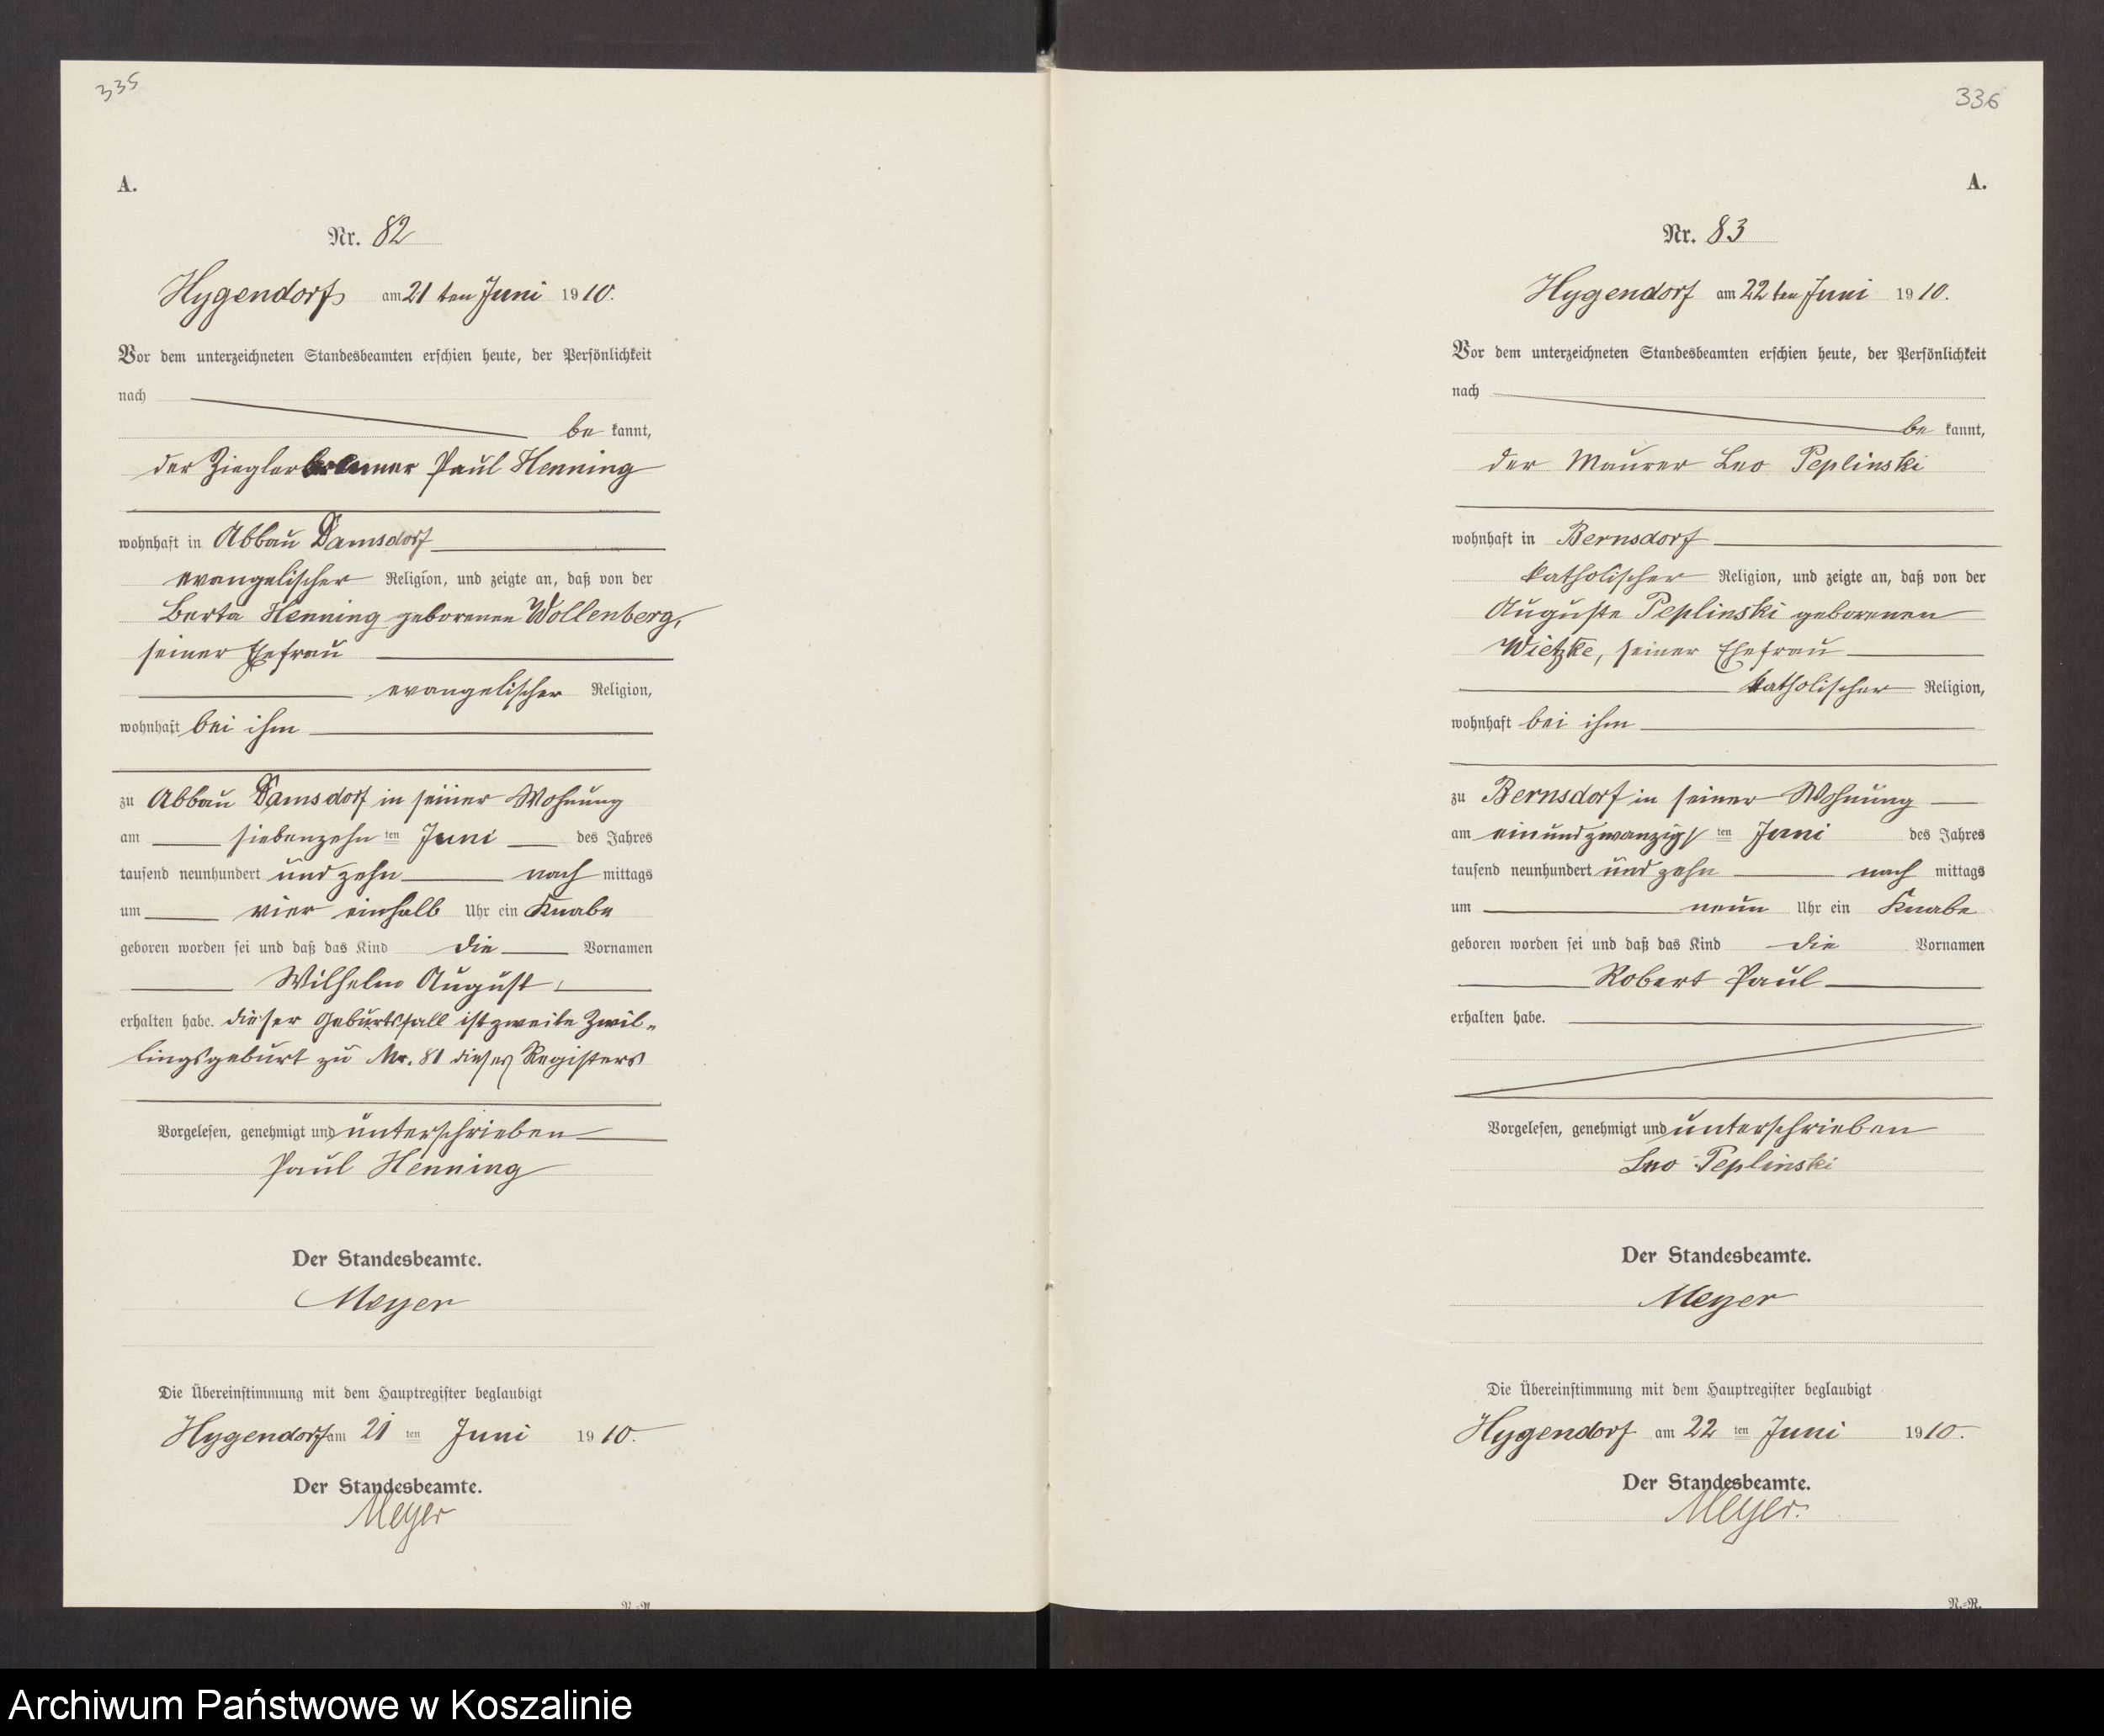 335
A.
Nr. 82
Hygendorf am 21 ten Juni 1910.
Vor dem unterzeichneten Standesbeamten erschien heute, der Persönlichkeit
nach
be kannt,
der Ziegler Paul Henning
wohnhaft in Abbau Damsdorf
evangelischer Religion, und zeigte an, daß von der
Berta Henning geborenen Wollenberg,
seiner Ehefrau
evangelischer Religion,
wohnhaft bei ihm
zu Abbau Damsdorf in seiner Wohnung
am siebenzehn ten Juni des Jahres
tausend neunhundert und zehn nach mittags
um vier einhalb Uhr ein Knabe
geboren worden sei und daß das Kind die Vornamen
Wilhelm August
erhalten habe. dieser Geburtsfall ist zweite Zwil-
lingsgeburt zu Nr. 81 dieses Registers
Vorgelesen, genehmigt und unterschrieben
Paul Henning
Der Standesbeamte.
Meyer
Die Übereinstimmung mit dem Hauptregister beglaubigt
Hygendorf am 21 ten Juni 1910.
Der Standesbeamte.
Meyer
N.-R.
336
A.
Nr. 83
Hygendorf am 22 ten Juni 1910.
Vor dem unterzeichneten Standesbeamten erschien heute, der Persönlichkeit
nach
be kannt,
der Maurer Leo Peplinski
wohnhaft in Bernsdorf
katholischer Religion, und zeigte an, daß von der
Auguste Peplinski geborenen
Wietzke, seiner Ehefrau
katholischer Religion,
wohnhaft bei ihm
zu Bernsdorf in seiner Wohnung
am einundzwanzigs ten Juni des Jahres
tausend neunhundert und zehn nach mittags
um neun Uhr ein Knabe
geboren worden sei und daß das Kind die Vornamen
Robert Paul
erhalten habe.
Vorgelesen, genehmigt und unterschrieben
Leo Peplinski
Der Standesbeamte.
Meyer
Die Übereinstimmung mit dem Hauptregister beglaubigt
Hygendorf am 22 ten Juni 1910.
Der Standesbeamte.
Meyer.
N.-R.
Archiwum Państwowe w Koszalinie